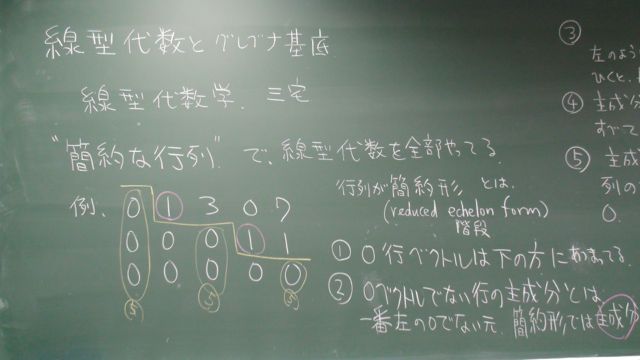 線型代数とグレブナ基底
線型代数学. 三宅
"簡約な行列" で、線型代数を全部やってる.
例、
0 1 3 0 7
0 0 0 1 1
0 0 0 0 0
行列が簡約形 とは、
(reduced echelon form)
階段
① 0行ベクトルは下の方にあつまってる.
② 0ベクトルでない行の主成分とは
一番左の0でない元. 簡約形では主成分
③
左のよう
ひくと、
④ 主成分
すべて
⑤ 主成
列の
0.